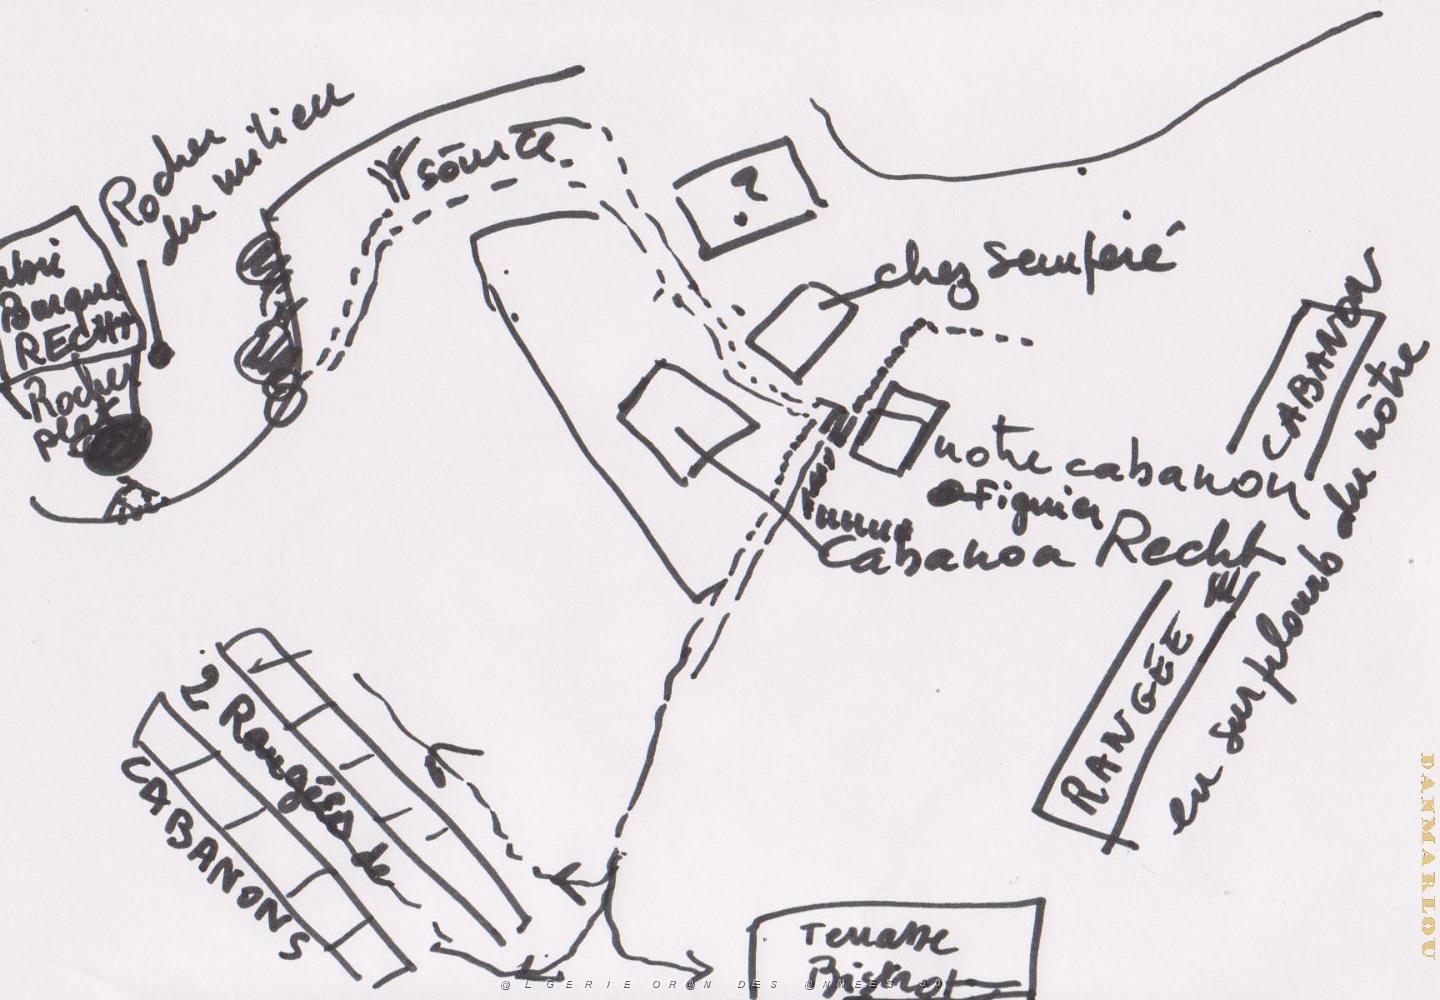 Rocher
du milieu
source
?
Abri
Barque
RECHT
Rocher
plat
chez Semperé
notre cabanon
Figuier
Cabanon Recht
RANGÉE
CABANON
en surplomb du nôtre
2 Rangées de
CABANONS
Terrasse
Bistrot
DANMARLOU
@LGERIE OR@N DES @NNEES 50